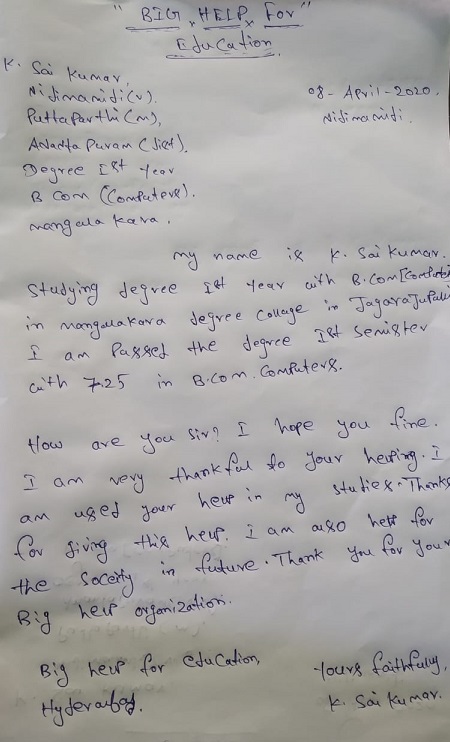 "BIG HELP For"
Education
K. Sai Kumar,
Nidimamidi(v).
Puttaparthi(M),
Ananta Puram (dist).
Degree Ist Year
B Com (Computers).
mangala kara.
08-April-2020.
Nidimamidi.
my name is K. Sai Kumar.
Studying degree Ist Year with B.Com[Computers]
in mangalakara degree College in Jagarajupalli
I am Passed the degree Ist Semister
with 7.25 in B.Com. Computers.
How are you Sir? I hope you fine.
I am very thankful to your helping. I
am used your help in my studies. Thanks
for giving this help. I am also help for
the Socerty in future. Thank you for your
Big help organization.
Big help for education,
Hyderabad.
Yours faithfully,
K. Sai Kumar.